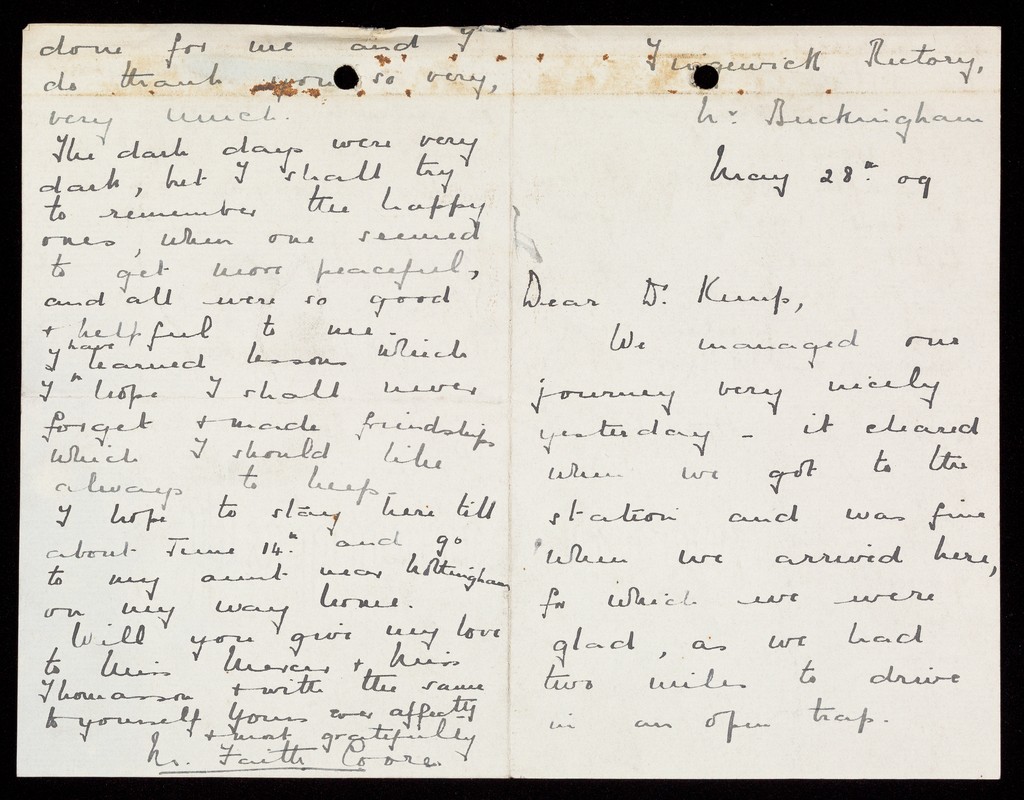 Tingewick Rectory,
Nr Buckingham
May 28th 09
Dear Dr. Kemp,
We managed our
journey very nicely
yesterday - it cleared
when we got to the
station and was fine
when we arrived here,
for which we were
glad, as we had
two miles to drive
in an open trap.
done for me and I
do thank you so very,
very much.
The dark days were very
dark, but I shall try
to remember the happy
ones, when one seemed
to get more peaceful,
and all were so good
+ helpful to me.
I have learned lessons which
I hope I shall never
forget + made friendships
which I should like
always to keep.
I hope to stay here till
about June 14th and go
to my aunt near Nottingham
on my way home.
Will you give my love
to Miss Mercer + Miss
Thomasson + with the same
to yourself Yours ever affectly
+ most gratefully
M. Faith Coore.